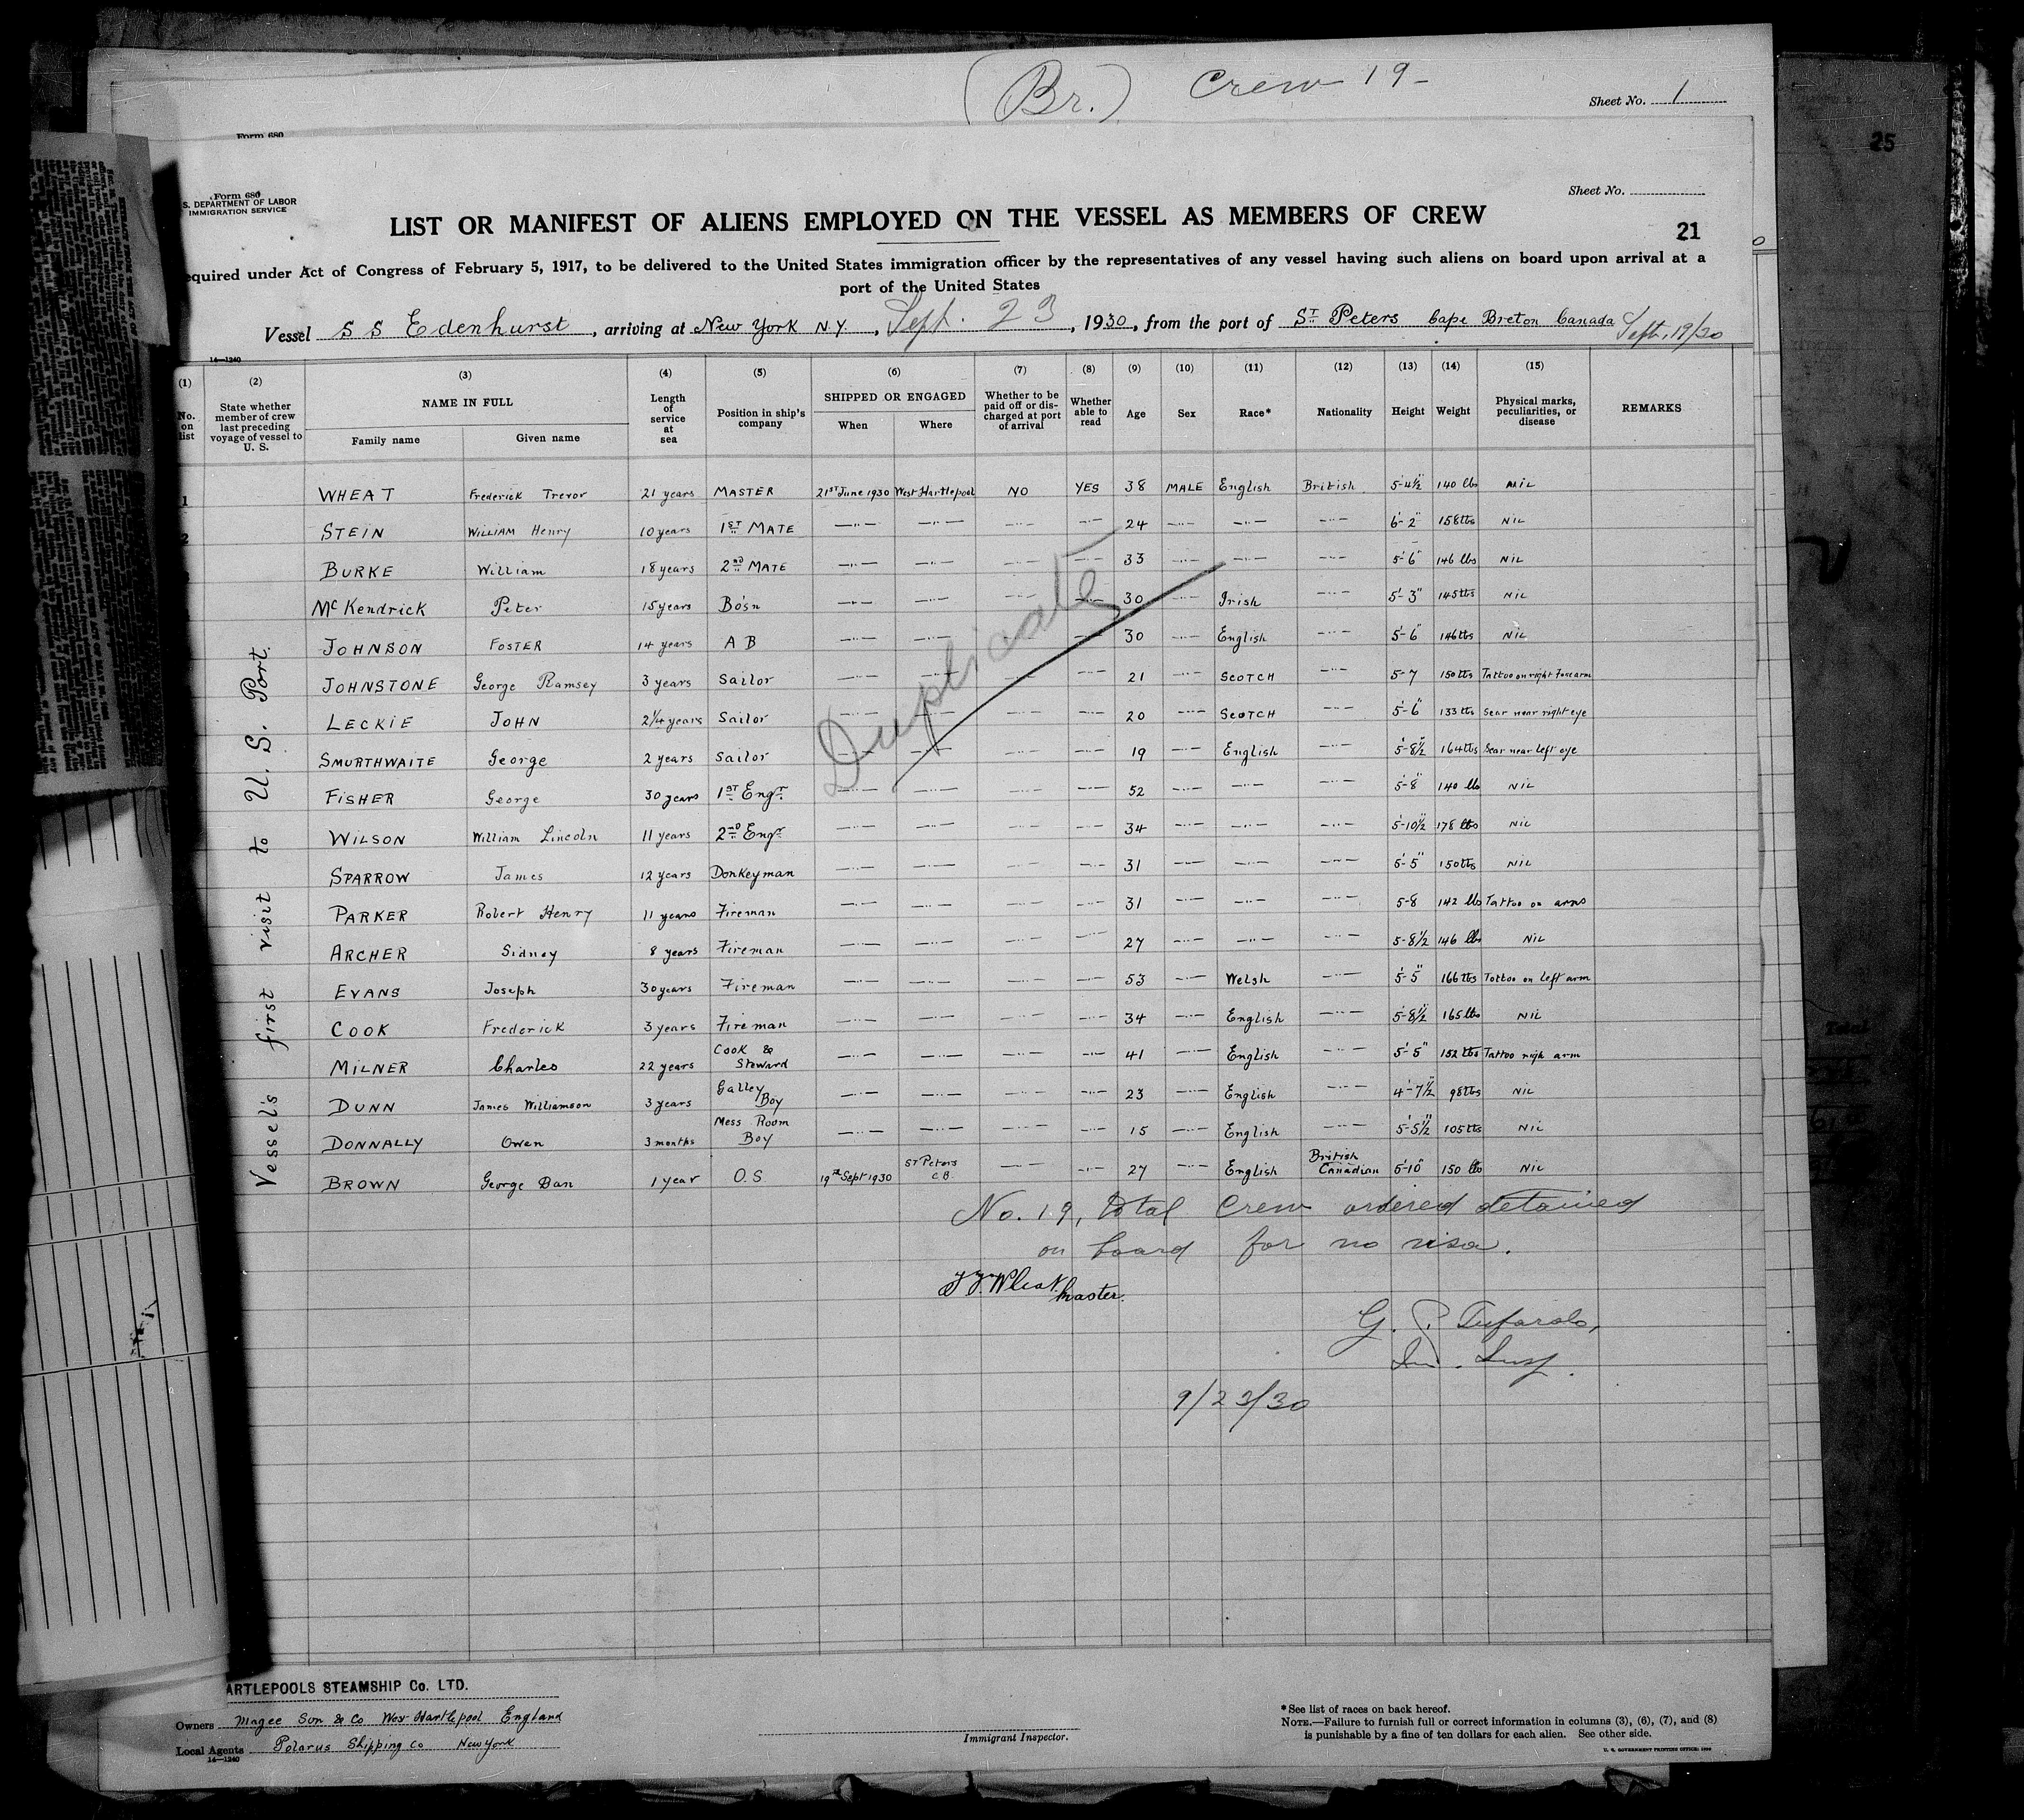 (Br.) Crew 19-
Sheet No. 1
Form 680
Form 680
S. DEPARTMENT OF LABOR
IMMIGRATION SERVICE
Sheet No.
LIST OR MANIFEST OF ALIENS EMPLOYED ON THE VESSEL AS MEMBERS OF CREW
21
equired under Act of Congress of February 5, 1917, to be delivered to the United States immigration officer by the representatives of any vessel having such aliens on board upon arrival at a
port of the United States
Vessel SS Edenhurst, arriving at New York N.Y., Sept. 23, 1930, from the port of St Peters Cape Breton Canada Sept. 19/30
14—1240
(1) (2) (3) (4) (5) (6) (7) (8) (9) (10) (11) (12) (13) (14) (15)
No. on list | State whether member of crew last preceding voyage of vessel to U. S. | NAME IN FULL Family name Given name | Length of service at sea | Position in ship's company | SHIPPED OR ENGAGED When Where | Whether to be paid off or discharged at port of arrival | Whether able to read | Age | Sex | Race* | Nationality | Height | Weight | Physical marks, peculiarities, or disease | REMARKS
1 WHEAT Frederick Trevor 21 years MASTER 21ST June 1930 West Hartlepool NO YES 38 MALE English British 5-4½ 140 lbs NIL
2 STEIN WILLIAM Henry 10 years 1ST MATE —"— —"— —"— —"— 24 —"— —"— —"— 6'-2" 158 lbs NIL
BURKE William 18 years 2ND MATE —"— —"— —"— —"— 33 —"— —"— —"— 5'-6" 146 lbs NIL
McKendrick Peter 15 years Bosn —"— —"— —"— —"— 30 —"— Irish —"— 5'-3" 145 lbs NIL
JOHNSON FOSTER 14 years A B —"— —"— —"— —"— 30 —"— English —"— 5'-6" 146 lbs NIL
JOHNSTONE George Ramsey 3 years Sailor —"— —"— —"— —"— 21 —"— SCOTCH —"— 5-7 150 lbs Tattoo on right Forearm
LECKIE JOHN 2¼ years Sailor —"— —"— —"— —"— 20 —"— SCOTCH —"— 5'-6" 133 lbs Scar near right eye
SMURTHWAITE George 2 years Sailor —"— —"— —"— —"— 19 —"— English —"— 5'-8½" 164 lbs Scar near left eye
FISHER George 30 years 1ST Engr. —"— —"— —"— —"— 52 —"— —"— —"— 5'-8" 140 lb NIL
WILSON William Lincoln 11 years 2ND Engr —"— —"— —"— —"— 34 —"— —"— —"— 5'-10½" 178 lbs NIL
SPARROW James 12 years Donkeyman —"— —"— —"— —"— 31 —"— —"— —"— 5'-5" 150 lbs NIL
PARKER Robert Henry 11 years Fireman —"— —"— —"— —"— 31 —"— —"— —"— 5-8 142 lbs Tattoo on arms
ARCHER Sidney 8 years Fireman —"— —"— —"— —"— 27 —"— —"— —"— 5-8½ 146 lbs NIL
EVANS Joseph 30 years Fireman —"— —"— —"— —"— 53 —"— Welsh —"— 5'-5" 166 lbs Tattoo on left arm
COOK Frederick 3 years Fireman —"— —"— —"— —"— 34 —"— English —"— 5'-8½" 165 lbs NIL
MILNER Charles 22 years Cook & Steward —"— —"— —"— —"— 41 —"— English —"— 5'-5" 152 lbs Tattoo righ arm
DUNN James Williamson 3 years Galley Boy —"— —"— —"— —"— 23 —"— English —"— 4'-7½" 98 lbs NIL
DONNALLY Owen 3 months Mess Room Boy —"— —"— —"— —"— 15 —"— English —"— 5'-5½" 105 lbs NIL
BROWN George Dan 1 year O.S 19th Sept 1930 St Peters C.B. —"— —"— 27 —"— English British Canadian 5'-10" 150 lbs NIL
Vessel's first visit to U. S. Port.
Duplicate
No. 19, total Crew ordered detained
on board for no visa.
Wheat Master.
G. P. Tufarolo,
Im. Insp.
9/23/30
ARTLEPOOLS STEAMSHIP Co. LTD.
Owners Magee Son & Co West Hartlepool England
Local Agents Polarus Shipping Co New York
14—1240
Immigrant Inspector.
*See list of races on back hereof.
NOTE.—Failure to furnish full or correct information in columns (3), (6), (7), and (8)
is punishable by a fine of ten dollars for each alien. See other side.
25
Total